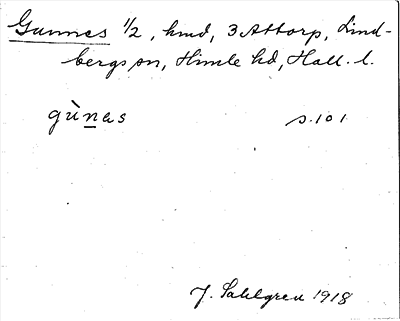 Gunnes 1/2, hmd, 3 Attorp, Lind-
bergs sn, Himle hd, Hall. l.
gùnas s. 101
J. Sahlgren 1918